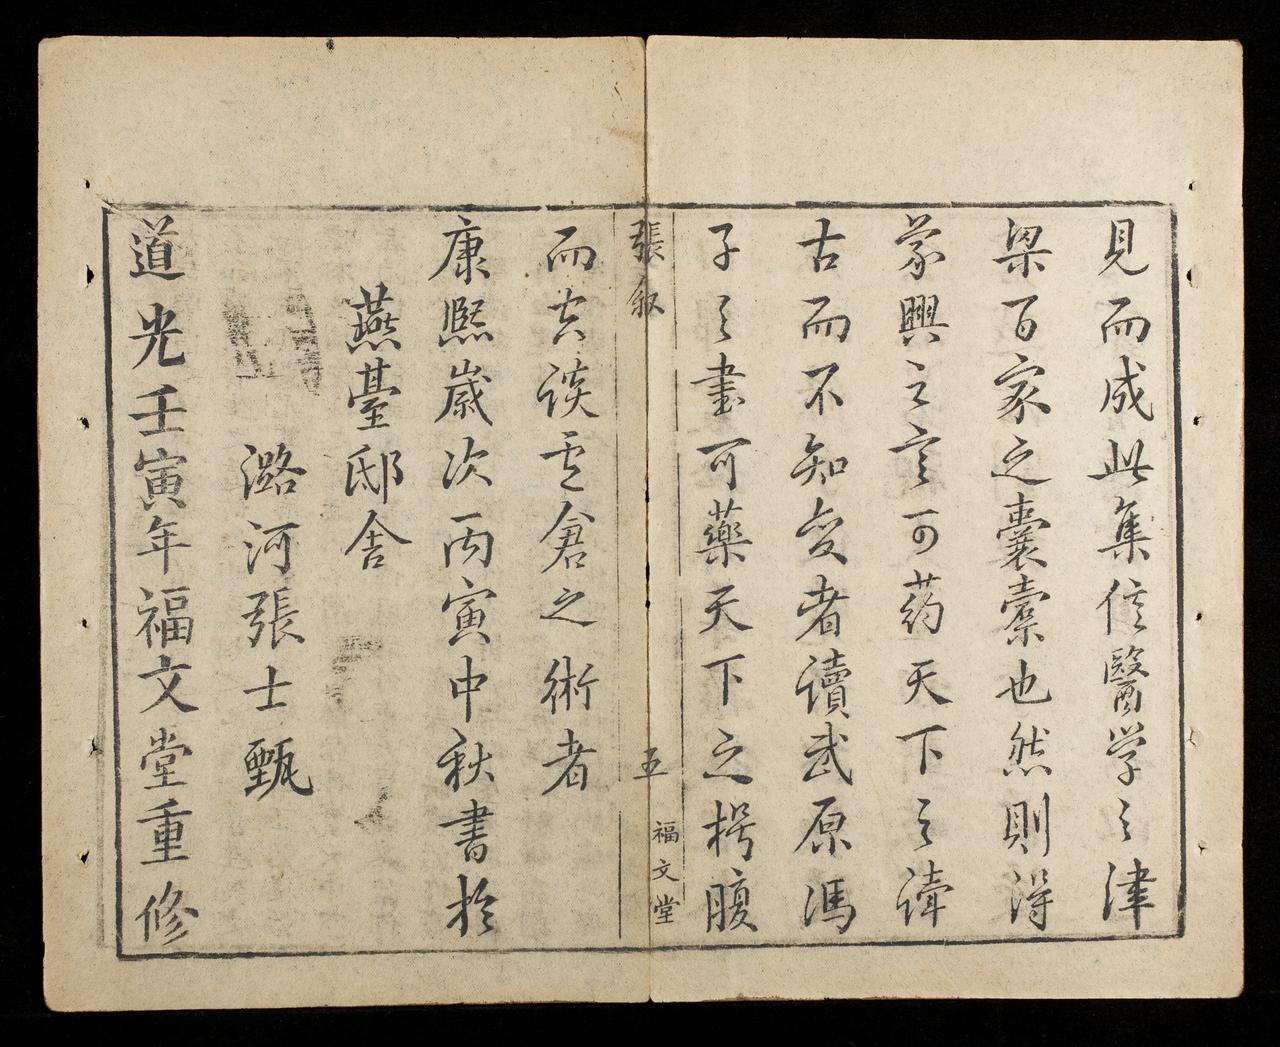 見而成此集信醫学之津
梁百家之囊橐也然則得
蒙興之言可药天下之讀
古而不知变者讀武原馮
子之書可藥天下之枵腹
張叙
五
福文堂
而妄談玄倉之術者
康熙歲次丙寅中秋書於
燕臺邸舍
潞河張士甄
道光壬寅年福文堂重修